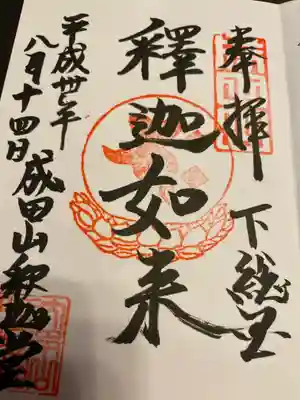 奉拝
下総国
釋迦如来
平成卅年
八月十四日 成田山釈迦堂